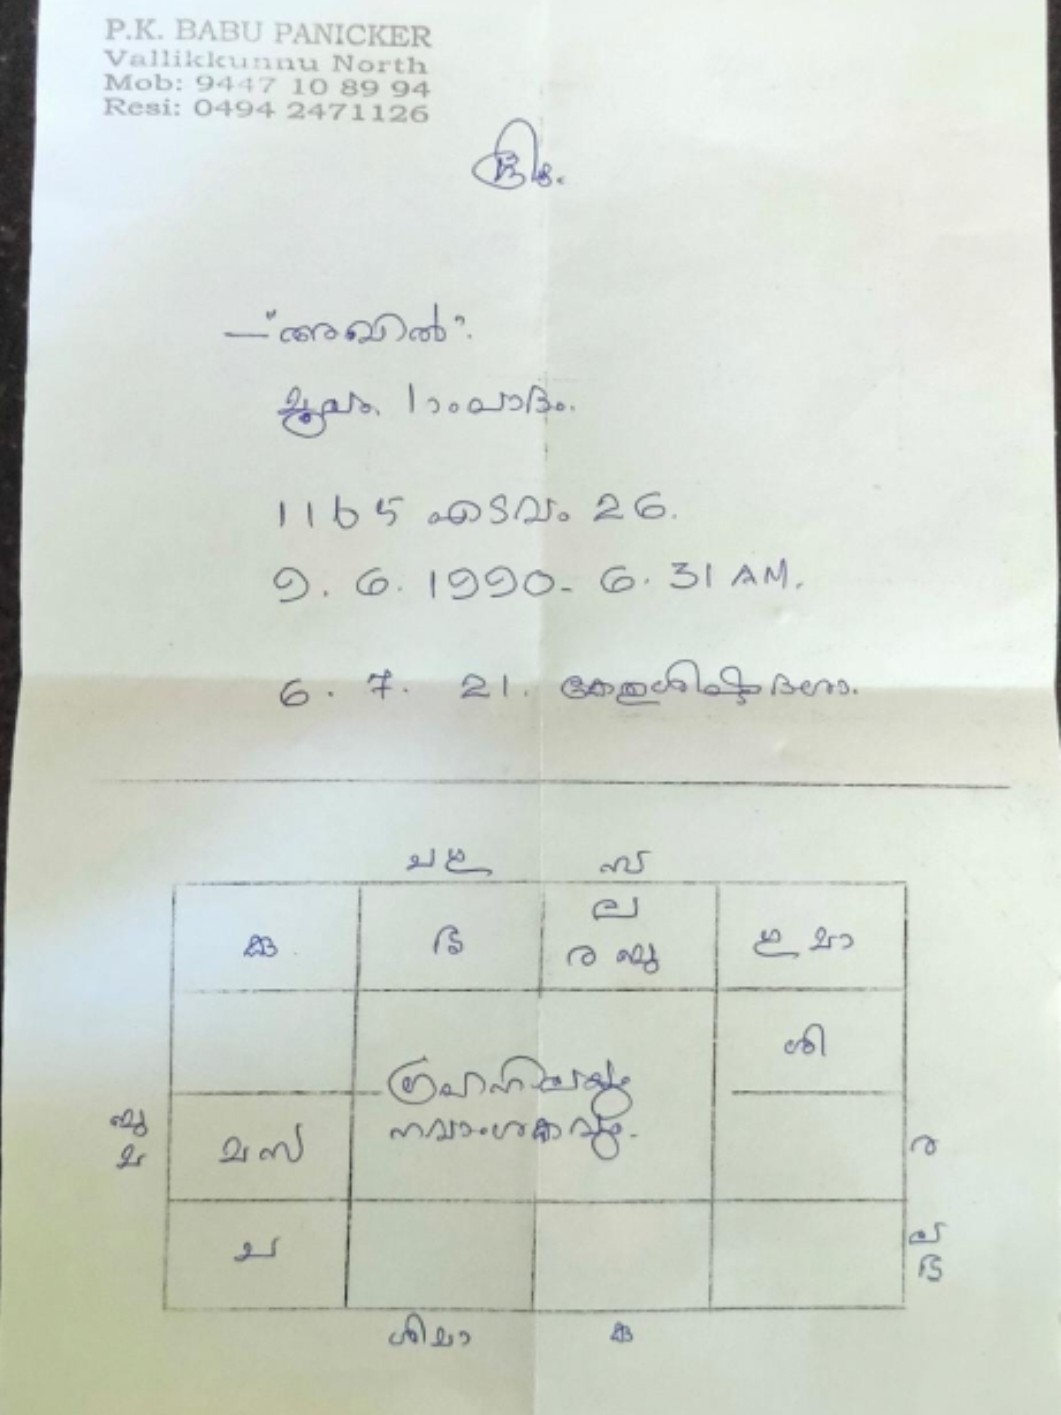 P.K. BABU PANICKER
Vallikkunnu North
Mob: 9447 10 89 94
Resi: 0494 2471126
ശ്രീഃ
—"അഖിൽ".
മൂലം 1ാംപാദം.
1165 എടവം 26.
9. 6. 1990- 6. 31 AM.
6. 7. 21. കേതുശിഷ്ടദശാ.
സ
ല
കു ര
ശി
ഗ്രഹനിലയും
നവാംശകവും.
മസ
ര
ച
ല
ശിമാ